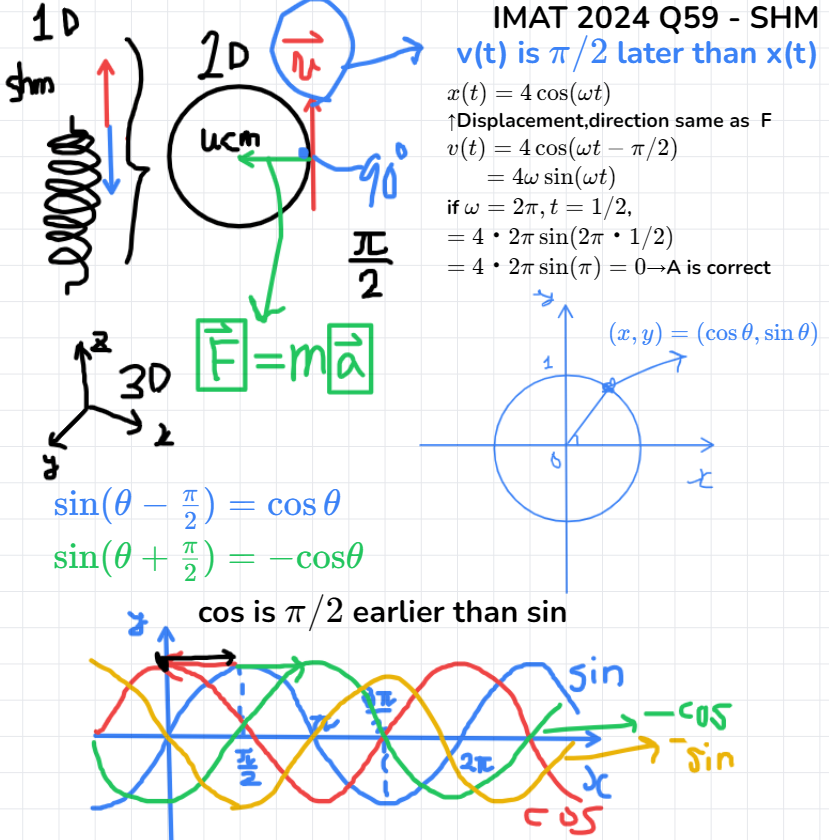 IMAT 2024 Q59 - SHM
v(t) is π/2 later than x(t)
1D
shm
2D
v⃗
4cm
90°
π/2
x(t) = 4 cos(ωt)
↑Displacement,direction same as F
v(t) = 4 cos(ωt − π/2)
= 4ω sin(ωt)
if ω = 2π, t = 1/2,
= 4 · 2π sin(2π · 1/2)
= 4 · 2π sin(π) = 0→A is correct
F⃗ = m a⃗
z
3D
x
y
y
(x, y) = (cos θ, sin θ)
1
0
x
sin(θ − π/2) = cos θ
sin(θ + π/2) = −cosθ
cos is π/2 earlier than sin
y
sin
−cos
−sin
cos
π/2
π
3π/2
2π
x